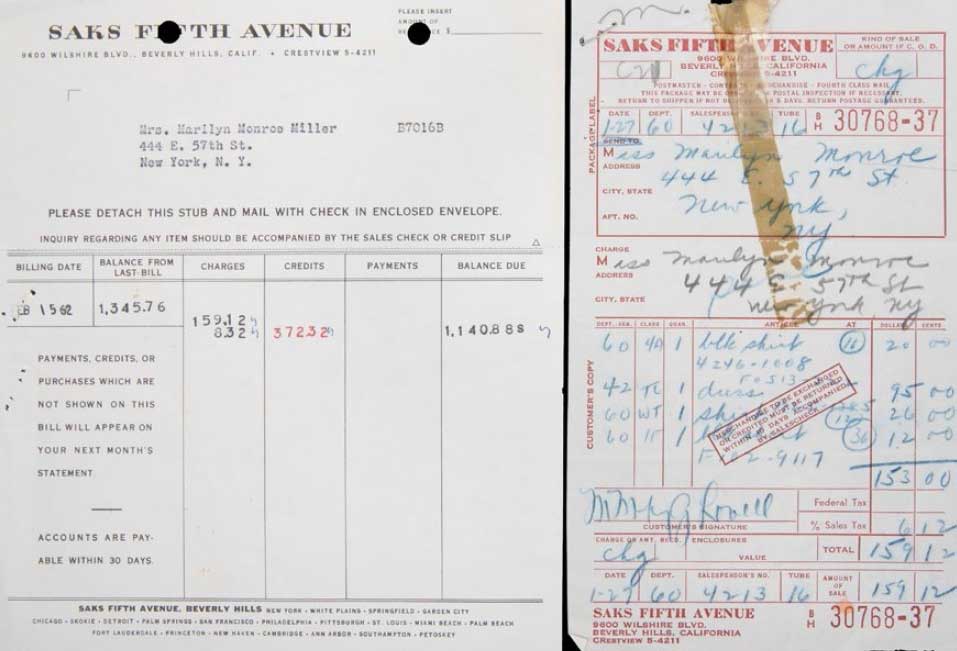 SAKS FIFTH AVENUE
9600 WILSHIRE BLVD., BEVERLY HILLS, CALIF. • CRESTVIEW 5-4211
PLEASE INSERT
AMOUNT OF
$
Mrs. Marilyn Monroe Miller B7016B
444 E. 57th St.
New York, N. Y.
PLEASE DETACH THIS STUB AND MAIL WITH CHECK IN ENCLOSED ENVELOPE.
INQUIRY REGARDING ANY ITEM SHOULD BE ACCOMPANIED BY THE SALES CHECK OR CREDIT SLIP
BILLING DATE BALANCE FROM LAST BILL CHARGES CREDITS PAYMENTS BALANCE DUE
1562 1,345.76
159.12
8.32 372.32 1,140.88
PAYMENTS, CREDITS, OR
PURCHASES WHICH ARE
NOT SHOWN ON THIS
BILL WILL APPEAR ON
YOUR NEXT MONTH'S
STATEMENT.
ACCOUNTS ARE PAY-
ABLE WITHIN 30 DAYS.
SAKS FIFTH AVENUE, BEVERLY HILLS NEW YORK • WHITE PLAINS • SPRINGFIELD • GARDEN CITY
CHICAGO • SKOKIE • DETROIT • PALM SPRINGS • SAN FRANCISCO • PHILADELPHIA • PITTSBURGH • ST. LOUIS • MIAMI BEACH • PALM BEACH
FORT LAUDERDALE • PRINCETON • NEW HAVEN • CAMBRIDGE • ANN ARBOR • SOUTHAMPTON • PETOSKEY
SAKS FIFTH AVENUE
9600 WILSHIRE BLVD.
BEVERLY HILLS, CALIFORNIA
CRESTVIEW 5-4211
KIND OF SALE
OR AMOUNT IF C. O. D.
chg
POSTMASTER MERCHANDISE - FOURTH CLASS MAIL
THIS PACKAGE MAY BE POSTAL INSPECTION IF NECESSARY.
RETURN TO SHIPPER IF NOT DAYS. RETURN POSTAGE GUARANTEED.
PACKAGE LABEL
DATE DEPT. TUBE
1-27 60 4213 16 BH 30768-37
SEND TO
Miss Marilyn Monroe
ADDRESS 444 E. 57th St.
CITY, STATE New York,
APT. NO. NY
CHARGE
Miss Marilyn Monroe
ADDRESS 444 E 57th St
CITY, STATE New York NY
CUSTOMER'S COPY
CLASS QUAN. ARTICLE AT DOLLARS CENTS
60 4A 1 blk skirt 16 20 00
4246-1008
42 1 dress 95 00
60 WT 1 26 00
60 1 36 12 00
9117
MERCHANDISE TO BE EXCHANGED
OR CREDITED MUST BE RETURNED
WITHIN DAYS ACCOMPANIED
BY SALESCHECK
153 00
Federal Tax
CUSTOMER'S SIGNATURE
% Sales Tax 6 12
CHARGE OR AMT. RECD. ENCLOSURES
chg VALUE TOTAL 159 12
DATE DEPT. SALESPERSON'S NO. TUBE AMOUNT OF SALE
1-27 60 4213 16 159 12
SAKS FIFTH AVENUE
9600 WILSHIRE BLVD.
BEVERLY HILLS, CALIFORNIA
CRESTVIEW 5-4211
BH 30768-37